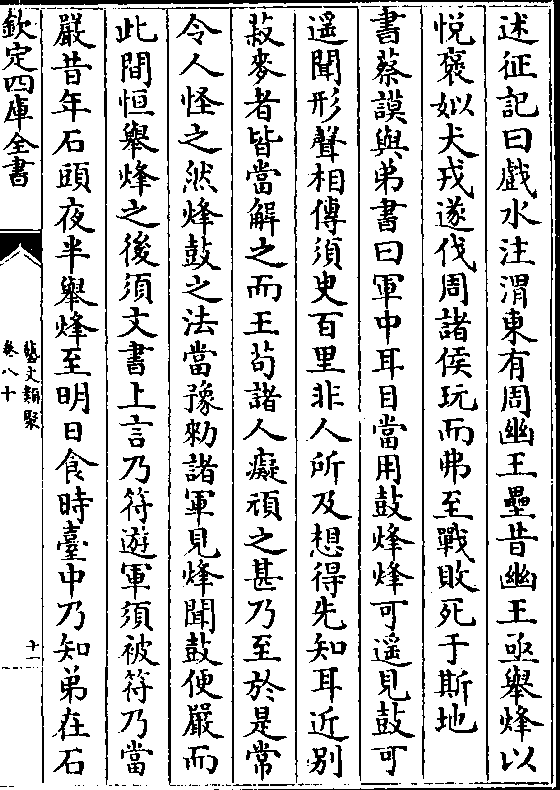 述征記曰戲水注渭東有周幽王壘昔幽王亟舉烽以
悅褒姒犬戎遂伐周諸侯玩而弗至戰敗死于斯地
書蔡謨與弟書曰軍中耳目當用鼓烽烽可遥見鼓可
遥聞形聲相傳須臾百里非人所及想得先知耳近别
菽麥者皆當解之而王苟諸人癡頑之甚乃至於是常
令人怪之然烽鼓之法當豫勑諸軍見烽聞鼓便嚴而
此間恒舉烽之後須文書上言乃符遊軍須被符乃當
嚴昔年石頭夜半舉烽至明日食時臺中乃知弟在石
欽定四庫全書
藝文類聚
卷八十
十一